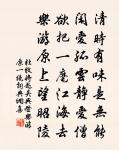 清時有味是無能
閒愛孤雲靜愛僧
欲把一麾江海去
樂游原上望昭陵
杜牧將赴吳興登樂游
原一絕詞典網